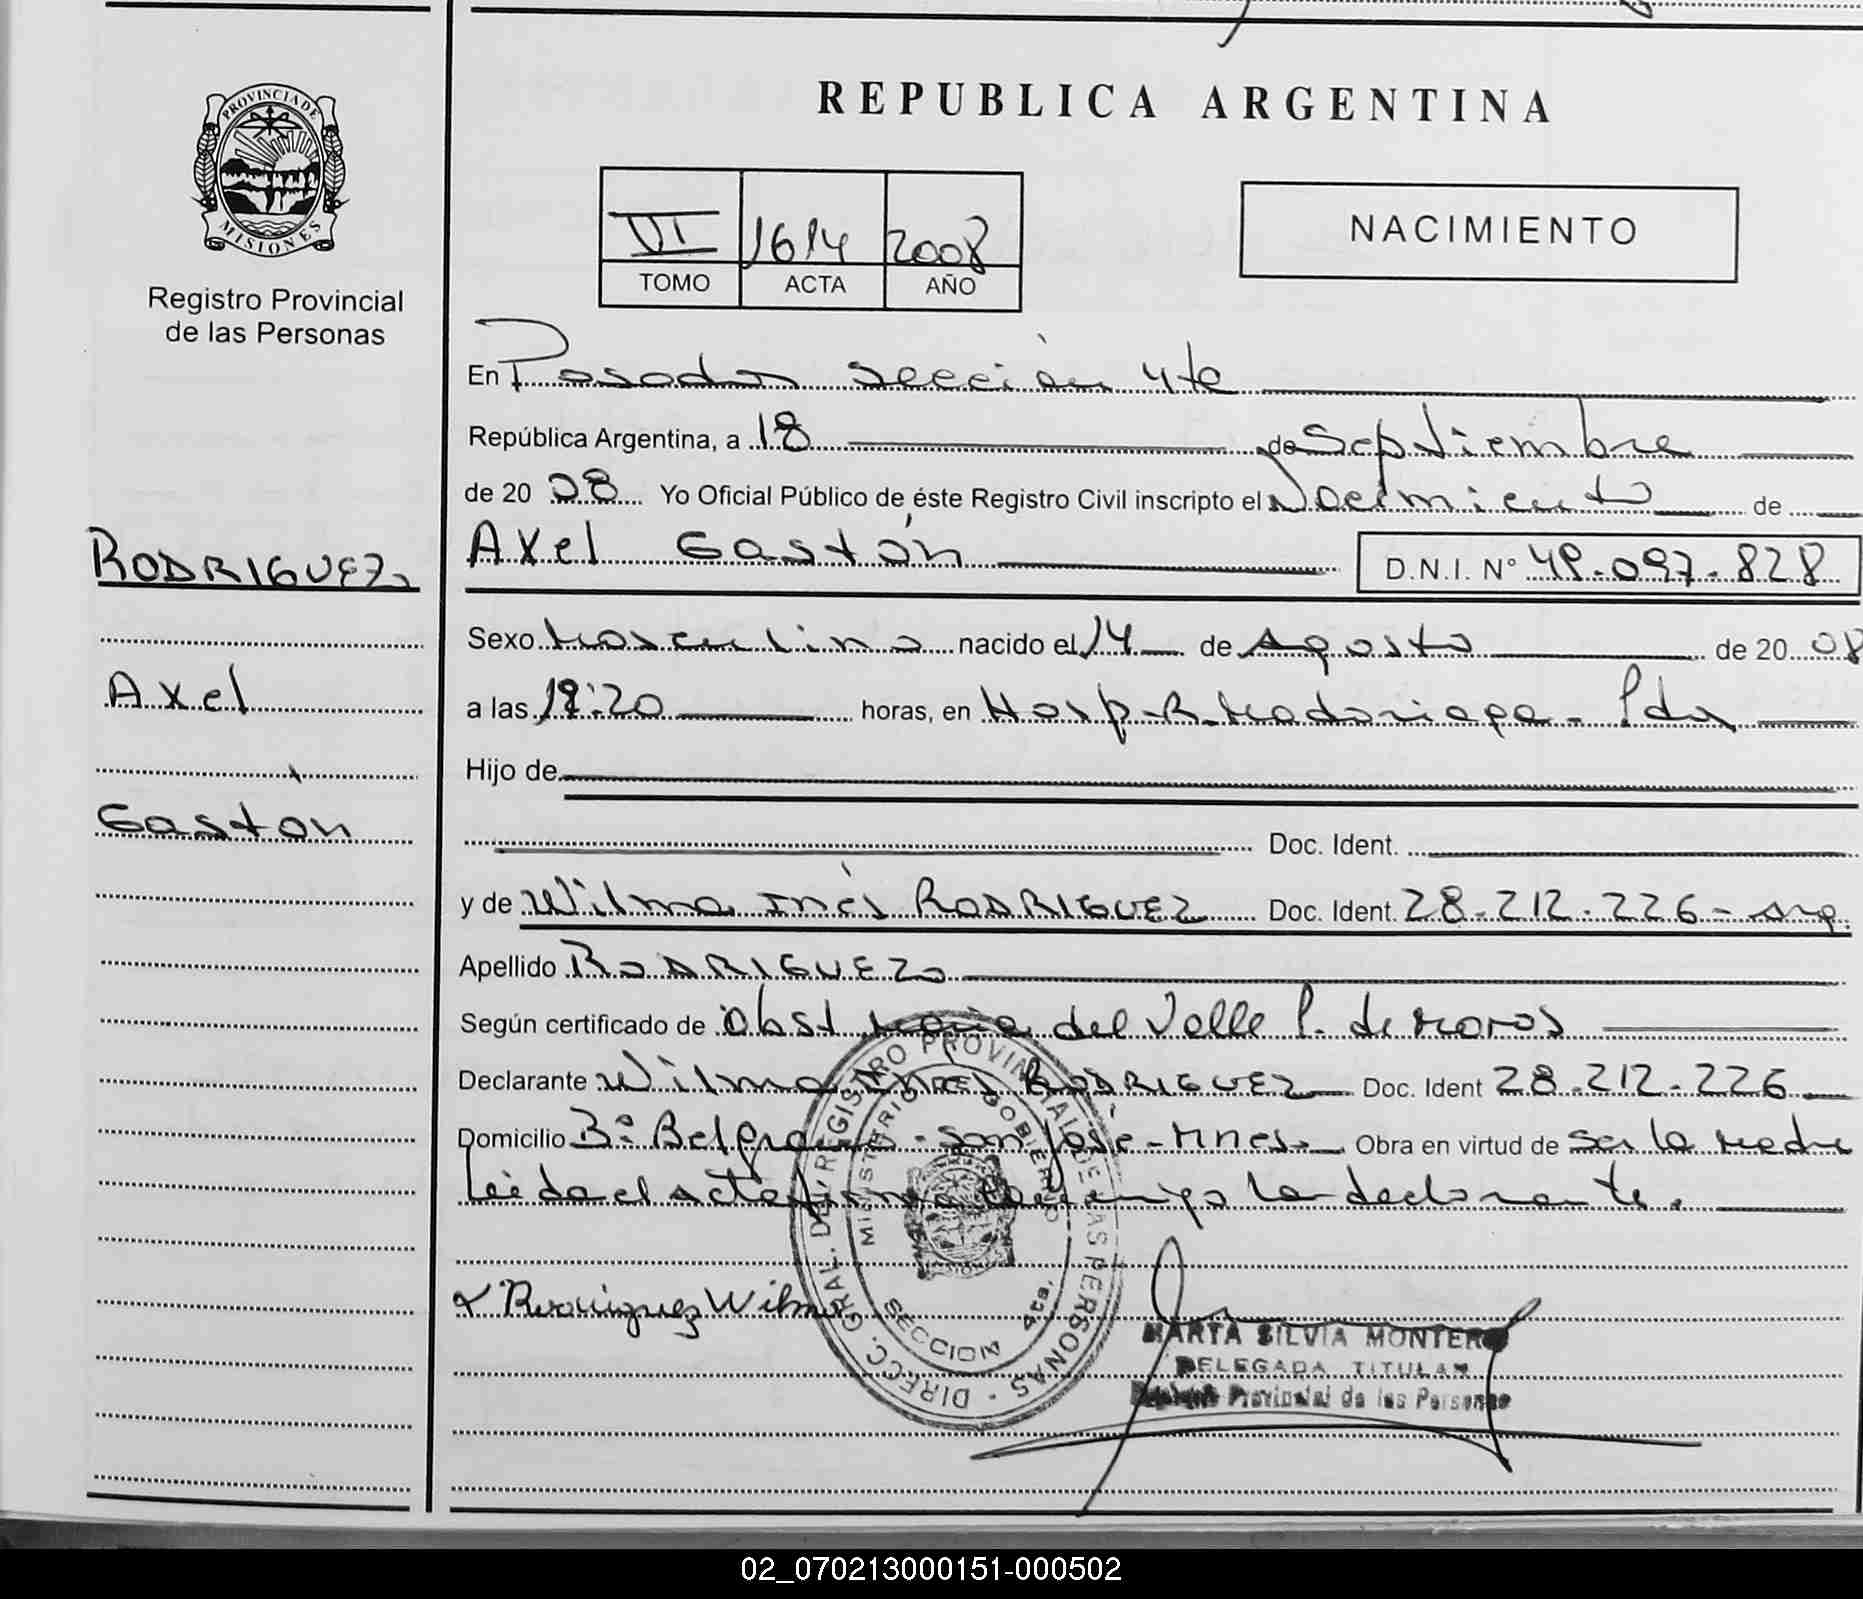 REPUBLICA ARGENTINA
PROVINCIA DE
MISIONES
Registro Provincial
de las Personas
VI 1614 2008
TOMO ACTA AÑO
NACIMIENTO
En Posadas sección 4ta
República Argentina, a 18 de Septiembre
de 20 08 Yo Oficial Público de éste Registro Civil inscripto el Nacimiento de
RODRIGUEZ
Axel Gastón D.N.I. N° 49.097.828
Sexo Masculino nacido el 14 de Agosto de 20 08
Axel
a las 19:20 horas, en Hosp. R. Madariaga - Pdas
Hijo de
Gastón
Doc. Ident.
y de Wilma Inés RODRIGUEZ Doc. Ident. 28.212.226 - arg.
Apellido RODRIGUEZ
Según certificado de Obst María del Valle P. de
Declarante Wilma Inés RODRIGUEZ Doc. Ident 28.212.226
Domicilio B° Belgrano - San José - Mnes. Obra en virtud de ser la madre
Leída el acta firma conmigo la declarante.
DIRECC. GRAL. DEL REGISTRO PROVINCIAL DE LAS PERSONAS
MINISTERIO DE GOBIERNO
SECCION 4ta.
Rodriguez Wilma
MARTA SILVIA MONTERO
DELEGADA TITULAR
Provincial de las Personas
02_070213000151-000502